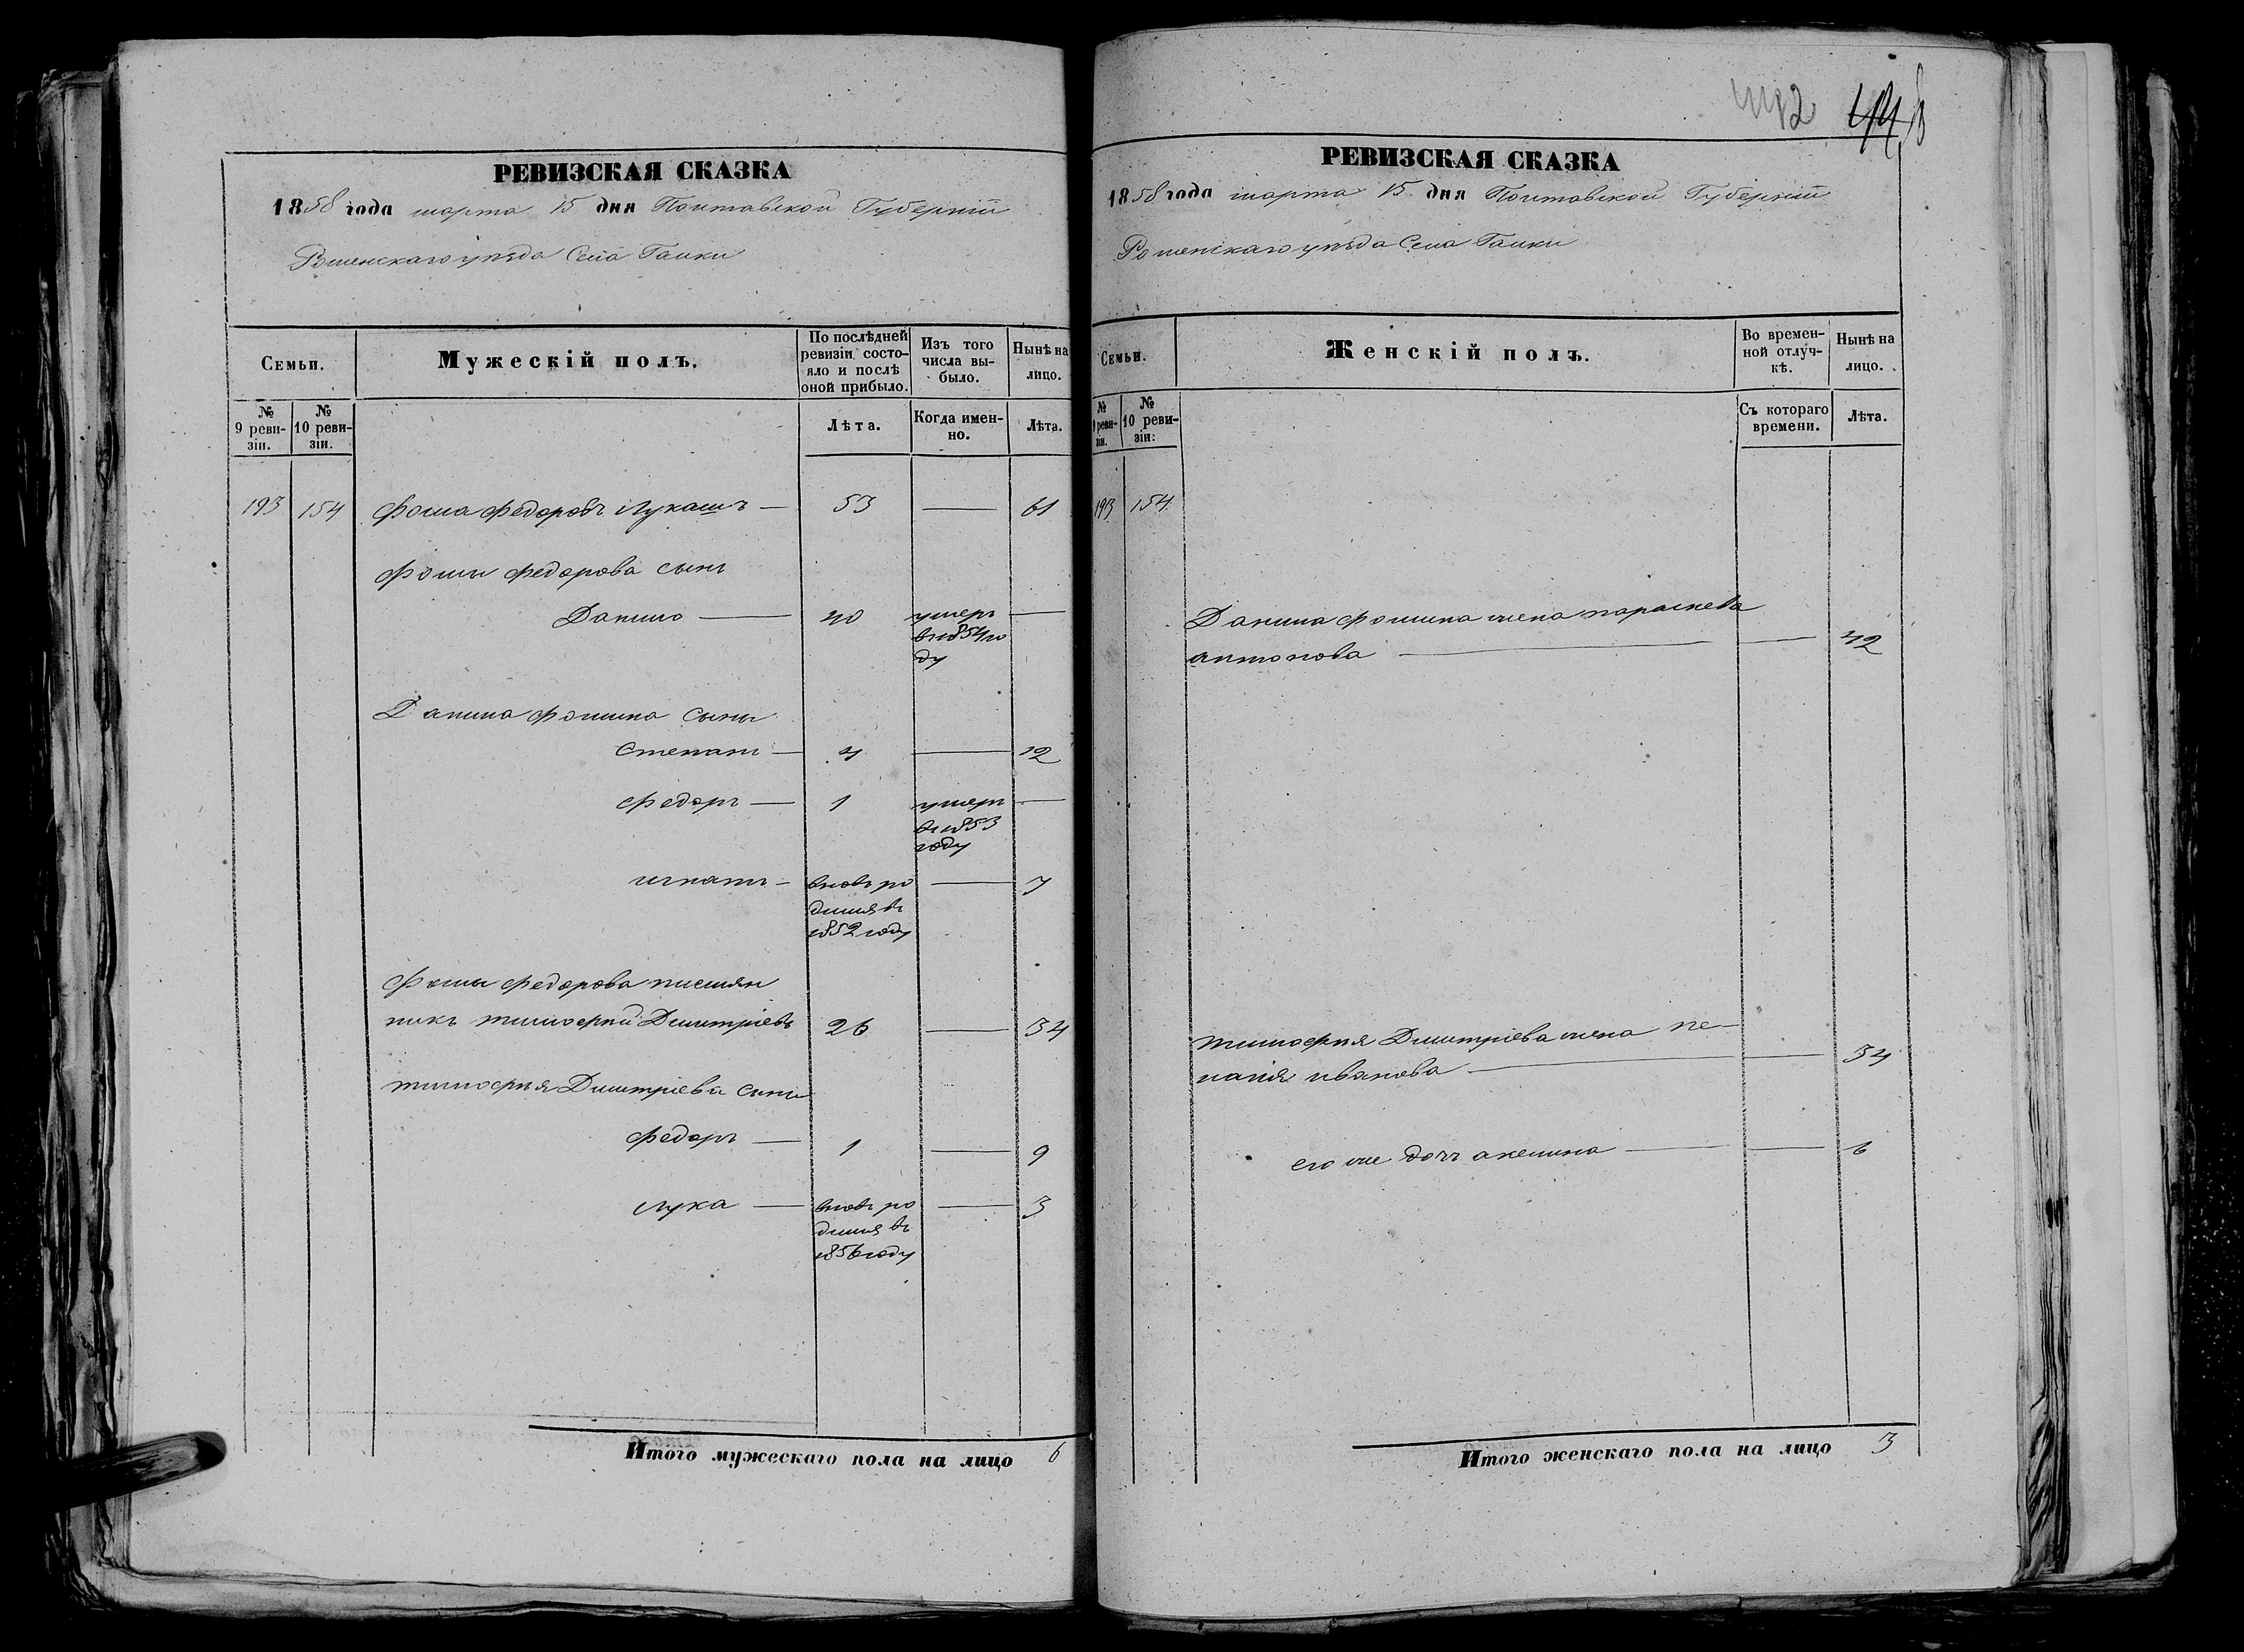 РЕВИЗСКАЯ СКАЗКА
1858 года марта 15 дня Полтавской Губерніи
Роменскаго уѣзда Села Галки
Семьи.
Мужескій полъ.
По послѣдней ревизіи состояло и послѣ оной прибыло.
Изъ того числа выбыло.
Нынѣ на лицо.
№ 9 ревизіи.
№ 10 ревизіи.
Лѣта.
Когда именно.
Лѣта.
193 154 Фома Федоровъ Лукашъ — 53 — 61
Фомы Федорова сынъ
Данило — 40 умеръ —
въ 1854 го
ду
Данила Фомина сыны
Степанъ — 4 — 12
Федоръ — 1 умеръ —
въ 1853
году
игнатъ — вновь ро — 7
дился въ
1852 году
Фомы Федорова племян
никъ тимофей Дмитріевъ 26 — 34
тимофея Дмитріева сыны
Федоръ — 1 — 9
лука — вновь ро — 3
дился въ
1856 году
Итого мужескаго пола на лицо 6
442
РЕВИЗСКАЯ СКАЗКА
1858 года марта 15 дня Полтавской Губерніи
Роменскаго уѣзда Села Галки
Семьи.
Женскій полъ.
Во временной отлучкѣ.
Нынѣ на лицо.
№ 9 ревизіи.
№ 10 ревизіи.
Съ котораго времени.
Лѣта.
193 154
Данила Фомина жена параскева
антонова — — 42
тимофея Дмитріева жена пе-
лагія иванова — — 34
его же дочь акелина — — 6
Итого женскаго пола на лицо 3